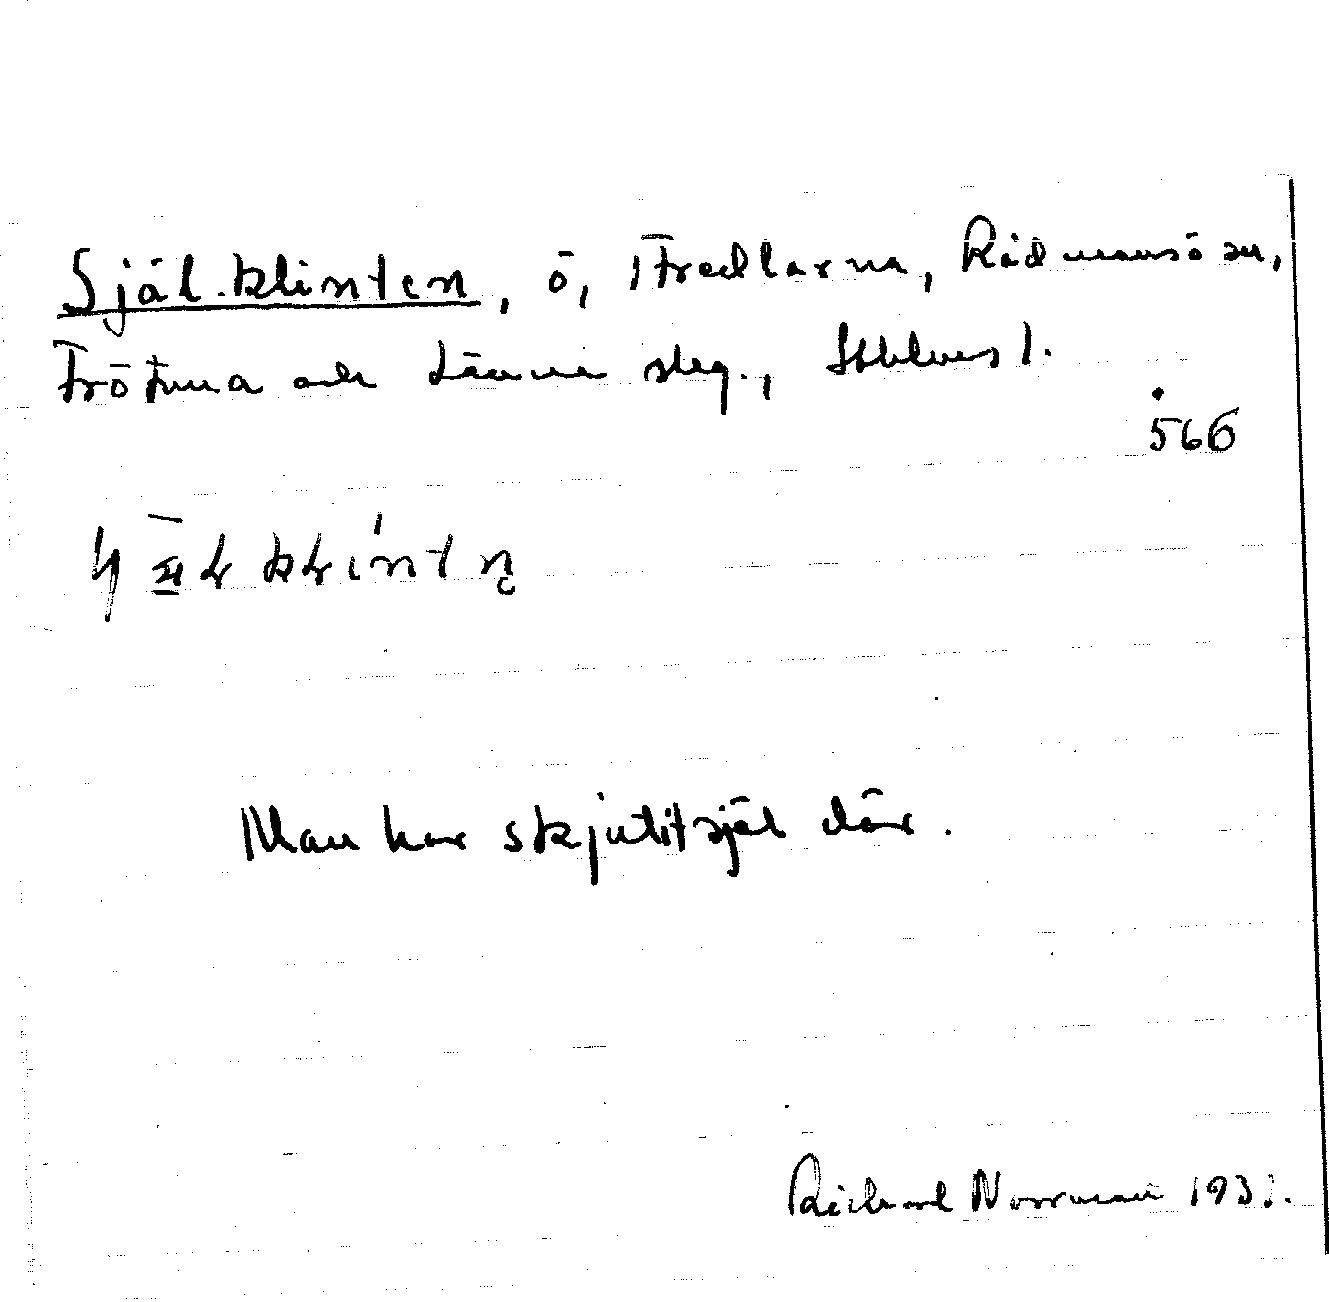 Själ-klinten, ö, Fredlarna, Rådmansö sn,
Frötuna och Länna slg., Sthlms l.
566
Man har skjutit själ där.
Richard Norrman